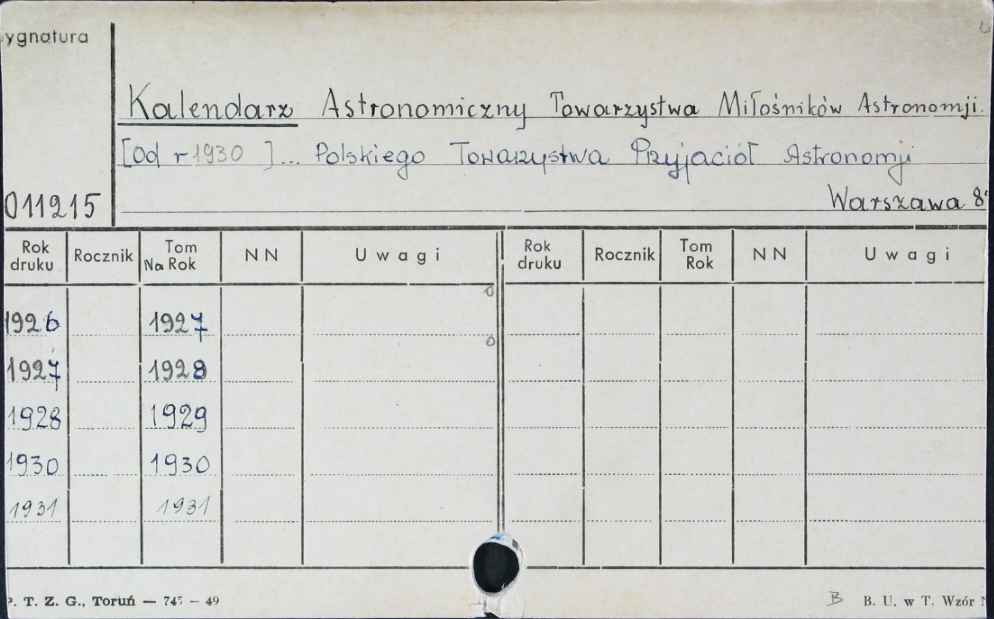 ygnatura
Kalendarz Astronomiczny Towarzystwa Miłośników Astronomji.
[od r 1930 ]... Polskiego Towarzystwa Przyjaciół Astronomji
011215 Warszawa 8°
Rok druku Rocznik Tom Na Rok NN Uwagi Rok druku Rocznik Tom Rok NN Uwagi
1926 1927
1927 1928
1928 1929
1930 1930
1931 1931
P. T. Z. G., Toruń — 745 — 49 B B. U. w T. Wzór